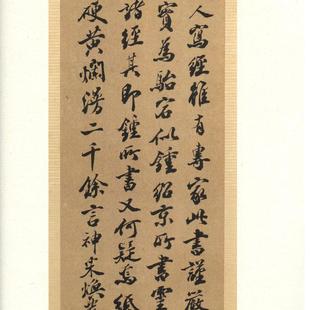 人寫經雖有專家此書謹嚴
實為駘宕似鍾紹京所書靈
諸經其即鍾所書又何疑為紙
硬黃爛漫二千餘言神采煥